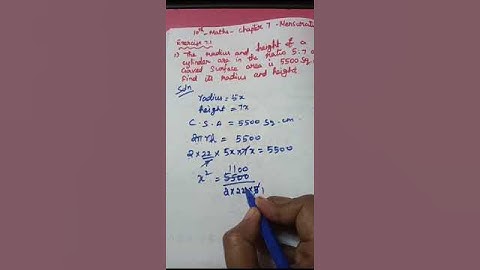 10th - Maths - Chapter 7 - Mensurati
Exercise 7.1
1) The radius and height of a
cylinder are in the ratio 5:7 a
Curved Surface area is 5500 Sq.
Find its radius and height
Soln
radius = 5x
height = 7x
C.S.A = 5500 Sq.cm
2πrh = 5500
2 × 22/7 × 5x × 7x = 5500
1100
x² = 5500
2 × 22 × 5